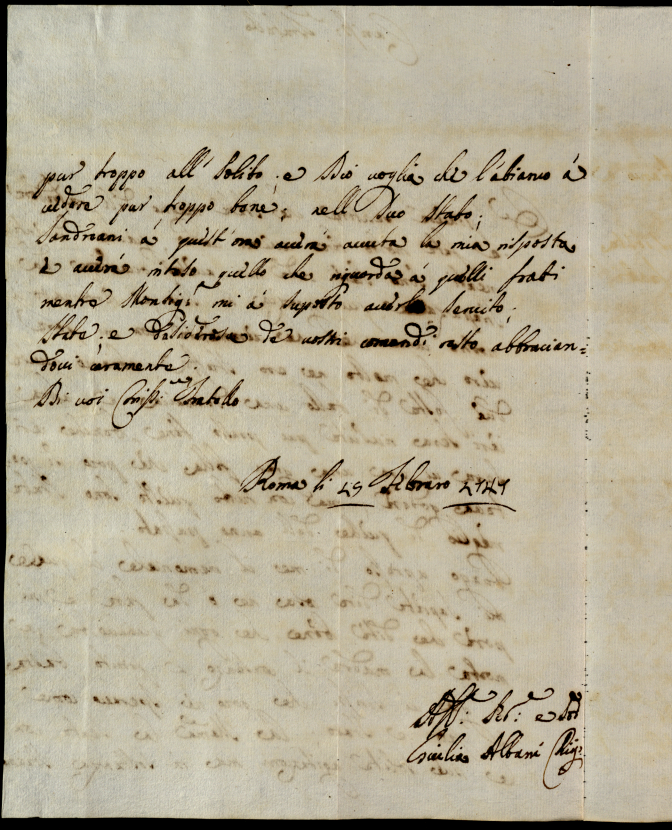 pur troppo all' solito. e Dio voglia che l'abiamo á
vedere pur troppo bene; nell Suo Stato;
Sandreani á quest'ora averá avuta la mia risposta
e averá inteso quello che riguarda á quelli frati
mentre Montig:r mi á suposto averla servito;
State. e desiderosa de vostri comandi resto abbracian=
dovi caramente.
Di voi Cariss:mo Fratello
Roma li 29 Febraro 1741
Aff:ma Ser:a e Sor
Cecilia Albani Chigi